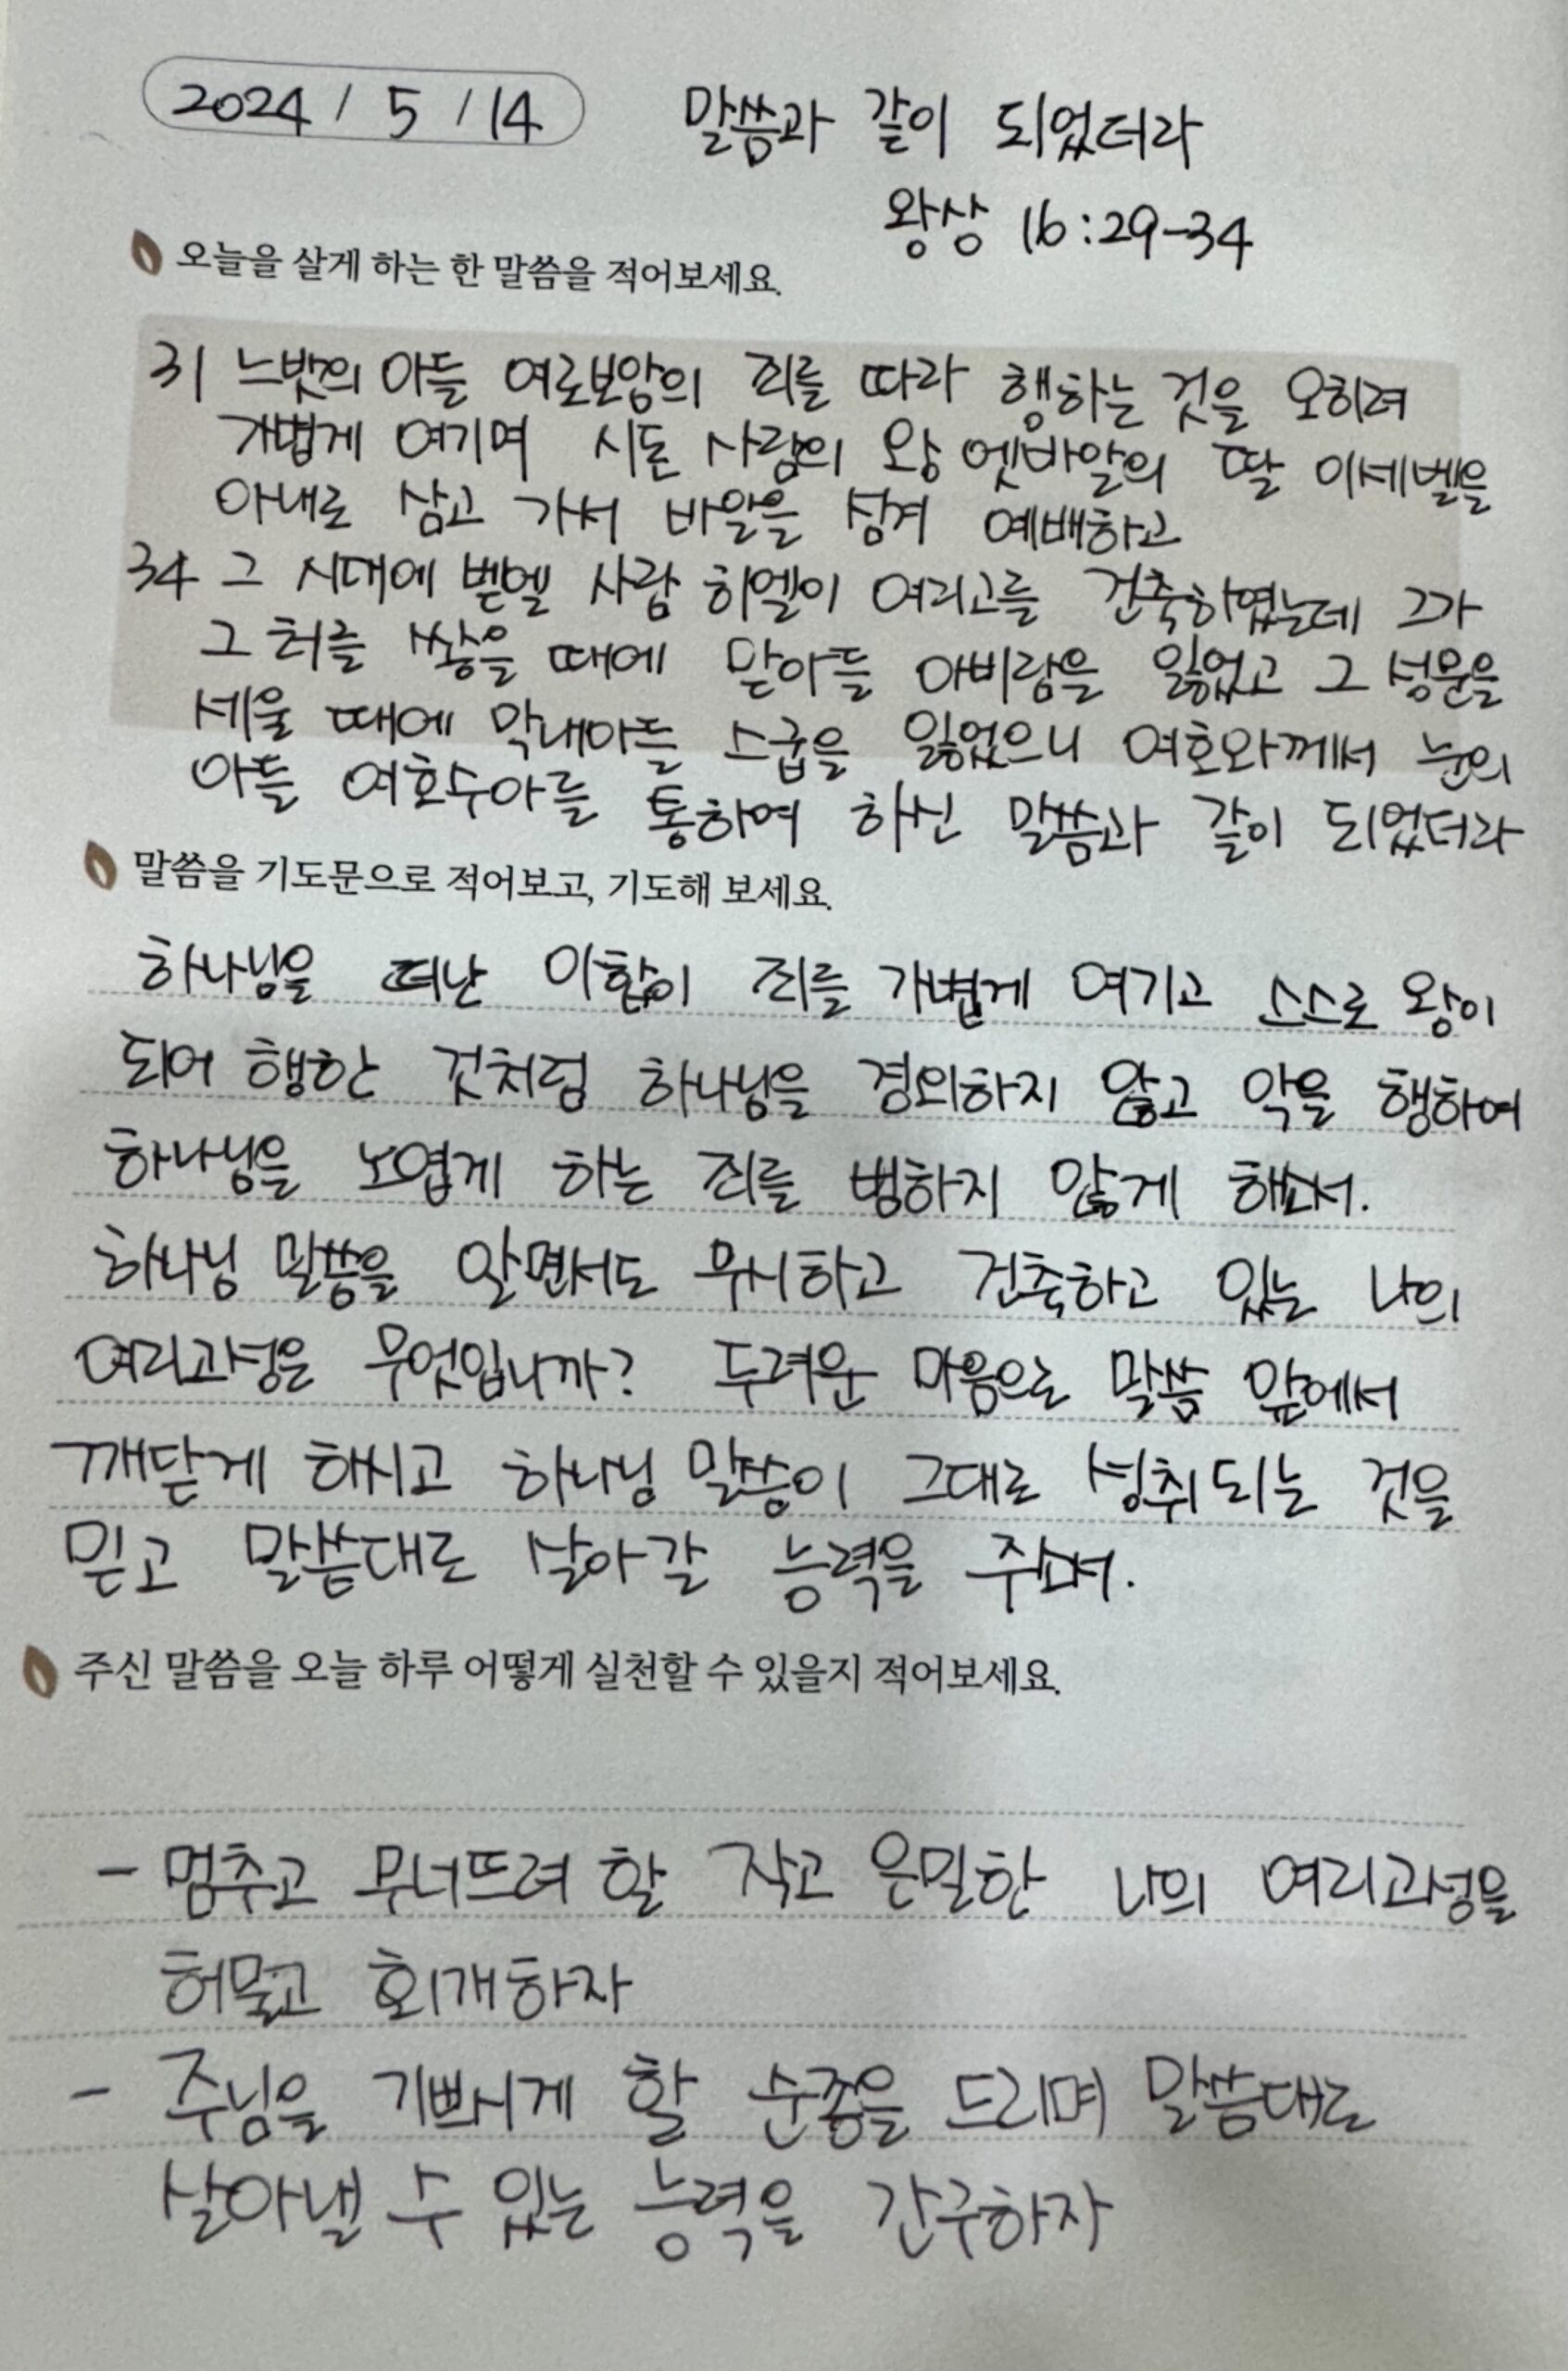 2024 / 5 / 14
말씀과 같이 되었더라
왕상 16:29-34
오늘을 살게 하는 한 말씀을 적어보세요.
31 느밧의 아들 여로보암의 죄를 따라 행하는 것을 오히려
가볍게 여기며 시돈 사람의 왕 엣바알의 딸 이세벨을
아내로 삼고 가서 바알을 섬겨 예배하고
34 그 시대에 벧엘 사람 히엘이 여리고를 건축하였는데 그가
그 터를 쌓을 때에 맏아들 아비람을 잃었고 그 성문을
세울 때에 막내아들 스굽을 잃었으니 여호와께서 눈의
아들 여호수아를 통하여 하신 말씀과 같이 되었더라
말씀을 기도문으로 적어보고, 기도해 보세요.
하나님을 떠난 아합이 죄를 가볍게 여기고 스스로 왕이
되어 행한 것처럼 하나님을 경외하지 않고 악을 행하여
하나님을 노엽게 하는 죄를 범하지 않게 하소서.
하나님 말씀을 알면서도 무시하고 건축하고 있는 나의
여리고성은 무엇입니까? 두려운 마음으로 말씀 앞에서
깨닫게 하시고 하나님 말씀이 그대로 성취되는 것을
믿고 말씀대로 살아갈 능력을 주소서.
주신 말씀을 오늘 하루 어떻게 실천할 수 있을지 적어보세요.
- 멈추고 무너뜨려 할 작고 은밀한 나의 여리고성을
허물고 회개하자
- 주님을 기쁘시게 할 순종을 드리며 말씀대로
살아낼 수 있는 능력을 간구하자